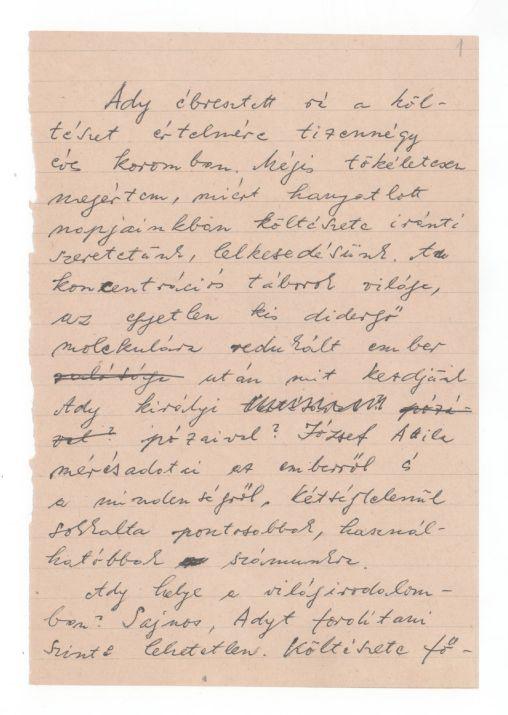 1
Ady ébresztett rá a köl-
tészet értelmére tizennégy
éves koromban. Mégis tökéletesen
megértem, miért hanyatlott
napjainkban költészete iránti
szeretetünk, lelkesedésünk. A
koncentrációs táborok világa,
az egyetlen kis didergő
molekulára redukált ember
valósága után mit kezdjünk
Ady királyi pózai-
val? pózaival? József Attila
mérésadatai az emberről és
a mindenségről, kétségtelenül
sokkalta pontosabbak, használ-
hatóbbak számunkra.
Ady helye a világirodalom-
ban? Sajnos, Adyt fordítani
szinte lehetetlen. Költészete fő-